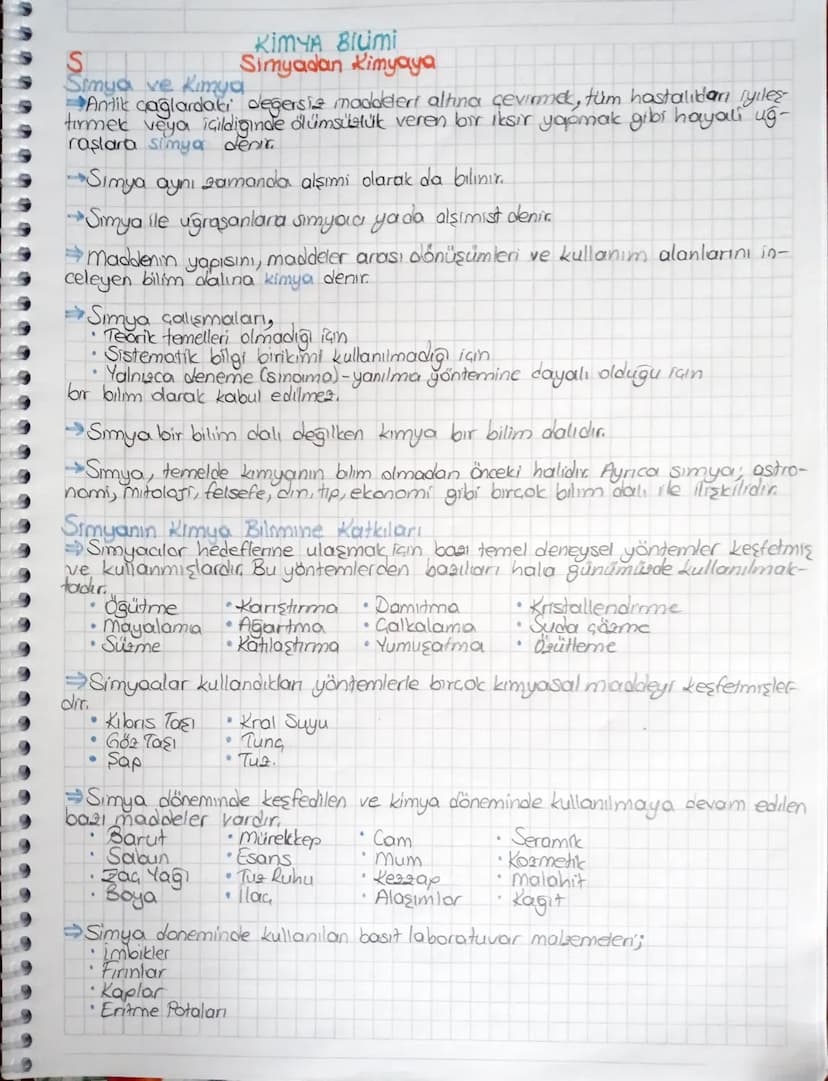 KİMYA BİLİMİ
S
Simyadan Kimyaya
Simya ve Kimya
⇒Antik çağlardaki değersiz maddeleri altına çevirmek, tüm hastalıkları iyileş-
tirmek veya içildiğinde ölümsüzlük veren bir iksir yapmak gibi hayali uğ-
raşlara simya denir.
→Simya aynı zamanda alşimi olarak da bilinir.
→Simya ile uğraşanlara simyacı ya da alşimist denir.
⇒Maddenin yapısını, maddeler arası dönüşümleri ve kullanım alanlarını in-
celeyen bilim dalına kimya denir.
⇒Simya çalışmaları,
• Teorik temelleri olmadığı için
• Sistematik bilgi birikimi kullanılmadığı için
• Yalnızca deneme (sınama)-yanılma yöntemine dayalı olduğu için
bir bilim olarak kabul edilmez.
→Simya bir bilim dalı değilken kimya bir bilim dalıdır.
→Simya, temelde kimyanın bilim olmadan önceki halidir. Ayrıca simya; astro-
nomi, mitoloji, felsefe, din, tıp, ekonomi gibi birçok bilim dalı ile ilişkilidir.
Simyanın Kimya Bilimine Katkıları
⇒Simyacılar hedeflerine ulaşmak için bazı temel deneysel yöntemler keşfetmiş
ve kullanmışlardır. Bu yöntemlerden bazıları hala günümüzde kullanılmak-
tadır.
• Öğütme • Karıştırma • Damıtma • Kristallendirme
• Mayalama • Ağartma • Çalkalama • Suda çözme
• Süzme • Katılaştırma • Yumuşatma • Özütleme
⇒Simyacılar kullandıkları yöntemlerle birçok kimyasal maddeyi keşfetmişler-
dir.
• Kıbrıs Taşı • Kral Suyu
• Göz Taşı • Tunç
• Şap • Tuz.
⇒Simya döneminde keşfedilen ve kimya döneminde kullanılmaya devam edilen
bazı maddeler vardır.
• Barut • Mürekkep • Cam • Seramik
• Sabun • Esans • Mum • Kozmetik
• Zaç Yağı • Tuz Ruhu • Kezzap • Malahit
• Boya • İlaç • Alaşımlar • Kağıt
⇒Simya döneminde kullanılan basit laboratuvar malzemeleri;
• İmbikler
• Fırınlar
• Kaplar
• Eritme Potaları